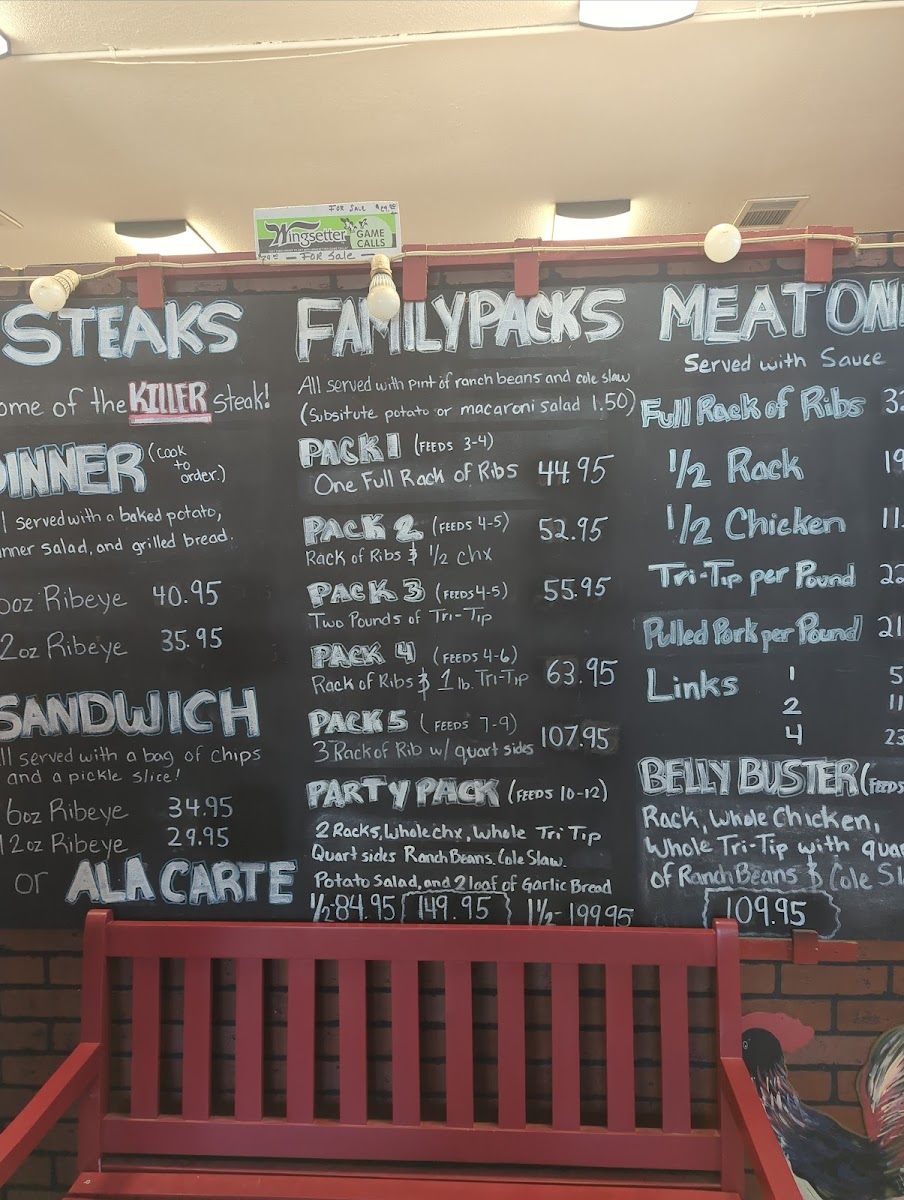 FOR SALE $29.95
Wingsetter GAME CALLS
FOR SALE
STEAKS
ome of the KILLER Steak!
DINNER (Cook to order.)
l served with a baked potato,
nner salad, and grilled bread.
oz Ribeye 40.95
2oz Ribeye 35.95
SANDWICH
ll served with a bag of chips
and a pickle slice!
6oz Ribeye 34.95
12oz Ribeye 29.95
or ALA CARTE
FAMILY PACKS
All served with pint of ranch beans and cole slaw
(Subsitute potato or macaroni salad 1.50)
PACK 1 (FEEDS 3-4)
One Full Rack of Ribs 44.95
PACK 2 (FEEDS 4-5) 52.95
Rack of Ribs & 1/2 chx
PACK 3 (FEEDS 4-5) 55.95
Two Pounds of Tri-Tip
PACK 4 (FEEDS 4-6)
Rack of Ribs & 1 lb. Tri-Tip 63.95
PACK 5 (FEEDS 7-9)
3 Rack of Rib w/ quart sides 107.95
PARTY PACK (FEEDS 10-12)
2 Racks, Whole chx, Whole Tri Tip
Quart sides Ranch Beans. Cole Slaw.
Potato Salad, and 2 loaf of Garlic Bread
1/2-84.95 149.95 1 1/2-199.95
MEAT ON
Served with Sauce
Full Rack of Ribs 3
1/2 Rack 19
1/2 Chicken 11
Tri-Tip per Pound 22
Pulled Pork per Pound 21
Links 1 5
2 11
4 23
BELLY BUSTER (FEEDS
Rack, Whole Chicken,
Whole Tri-Tip with quar
of Ranch Beans & Cole Sl
109.95